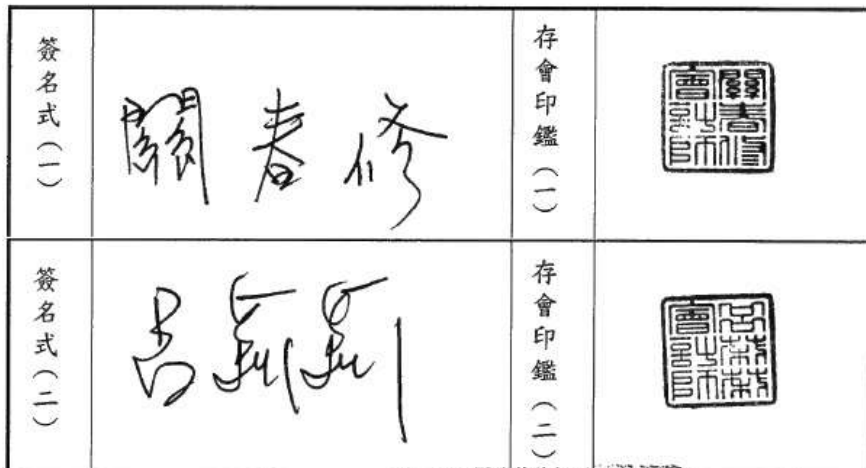 簽名式（一）
關春修
存會印鑑（一）
關春修
會計師
簽名式（二）
存會印鑑（二）
會計師